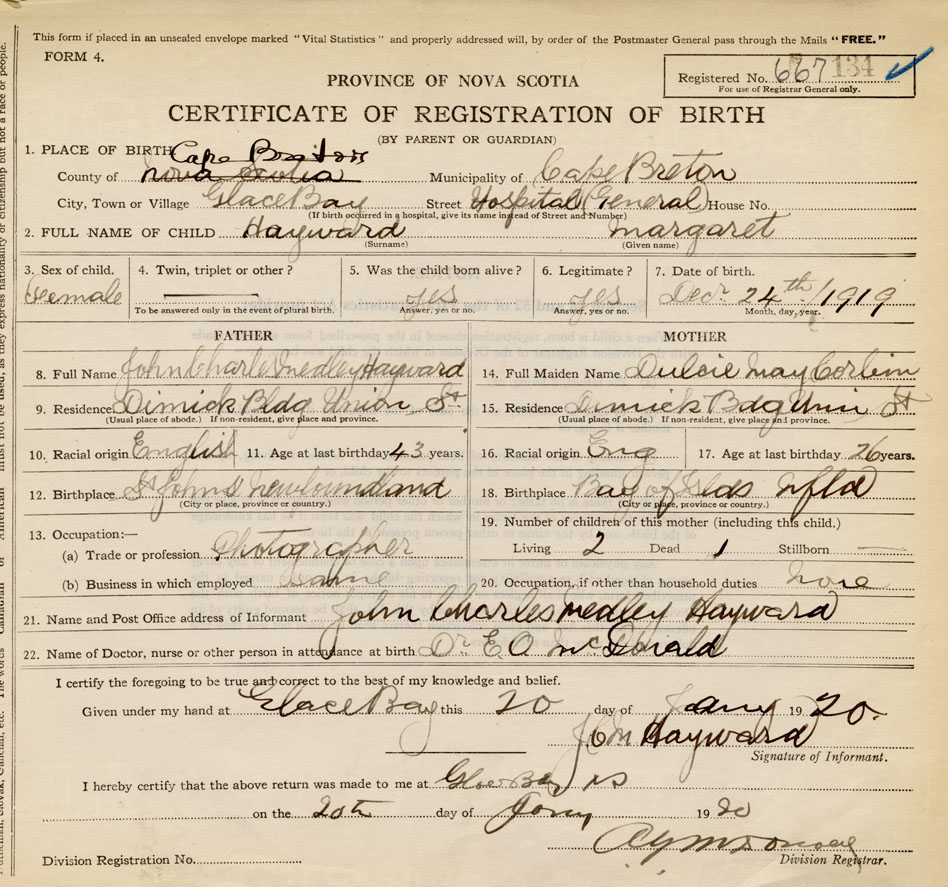 This form if placed in an unsealed envelope marked "Vital Statistics" and properly addressed will, by order of the Postmaster General pass through the Mails "FREE."
FORM 4.
PROVINCE OF NOVA SCOTIA
Registered No. 667 134
For use of Registrar General only.
CERTIFICATE OF REGISTRATION OF BIRTH
(BY PARENT OR GUARDIAN)
1. PLACE OF BIRTH Cape Breton
County of Nova Scotia Municipality of Cape Breton
City, Town or Village Glace Bay Street Hospital (General) House No.
(If birth occurred in a hospital, give its name instead of Street and Number)
2. FULL NAME OF CHILD Hayward Margaret
(Surname) (Given name)
3. Sex of child. 4. Twin, triplet or other? 5. Was the child born alive? 6. Legitimate? 7. Date of birth.
Female yes yes Decr 24th/1919
To be answered only in the event of plural birth. Answer, yes or no. Answer, yes or no. Month, day, year.
FATHER MOTHER
8. Full Name John Charles Medley Hayward 14. Full Maiden Name Dulcie May
9. Residence Dimick Bldg Union St 15. Residence Dimick Bdg Union St
(Usual place of abode.) If non-resident, give place and province. (Usual place of abode.) If non-resident, give place and province.
10. Racial origin English 11. Age at last birthday 43 years. 16. Racial origin Eng 17. Age at last birthday 26 years.
12. Birthplace St Johns Newfoundland 18. Birthplace Bay of Islds Nfld
(City or place, province or country.) (City or place, province or country.)
13. Occupation:— 19. Number of children of this mother (including this child.)
(a) Trade or profession Photographer Living 2 Dead 1 Stillborn —
(b) Business in which employed Same 20. Occupation, if other than household duties None
21. Name and Post Office address of Informant John Charles Medley Hayward
22. Name of Doctor, nurse or other person in attendance at birth. Dr. E. O. McDonald
I certify the foregoing to be true and correct to the best of my knowledge and belief.
Given under my hand at Glace Bay this 20 day of Jany 1920.
JCM Hayward
Signature of Informant.
I hereby certify that the above return was made to me at Glace Bay NS
on the 20th day of Jany 1920
Division Registration No. Division Registrar.